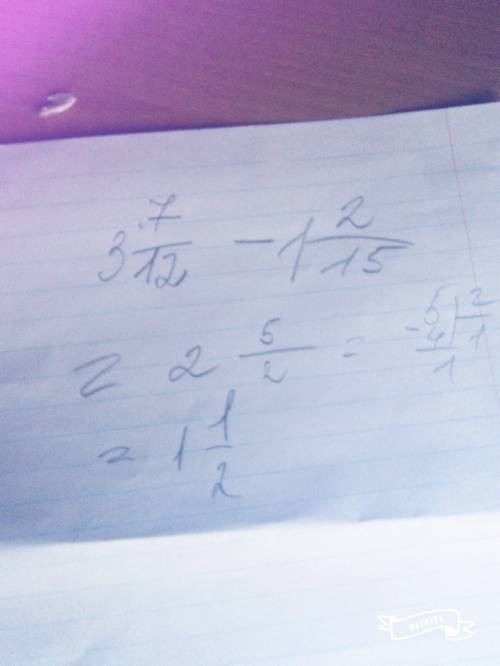 3 7/12 - 1 2/15
= 2 5/2 = -5 | 2
4 | 1
1
= 1 1/2